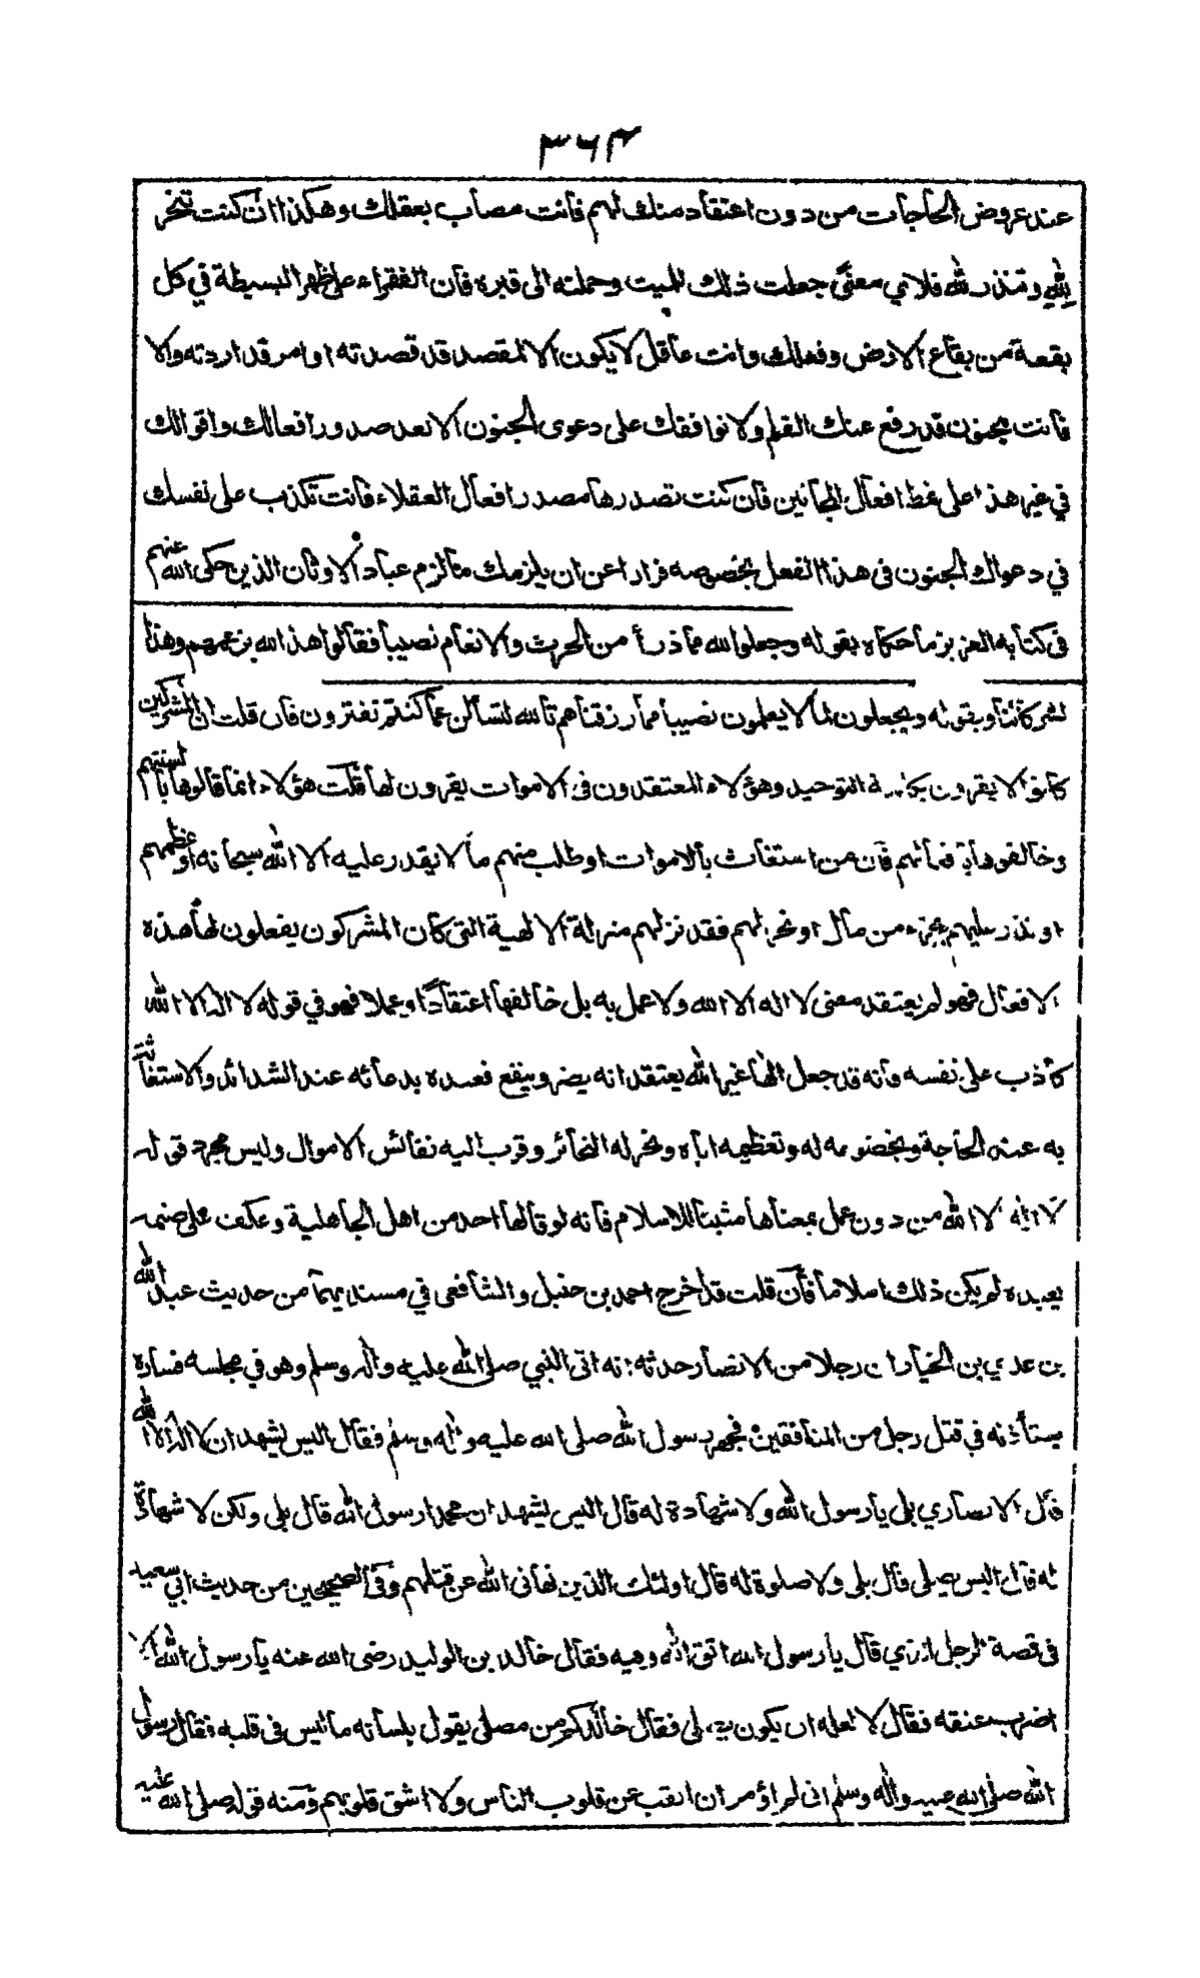 ٣٦٤
عند عروض الحاجات من دون اعتقاد منك لهم فانت مصاب بعقلك وهكذا ان كنت تنحر
لله وتنذر لله فلاي معنى جعلت ذلك للميت وحملته الى قبره فان الفقراء على ظهر البسيطة في كل
بقعة من بقاع الارض وفعلك وانت عاقل لا يكون الا لمقصد قد قصدته او امر قد اردته والا
فانت مجنون قد رفع عنك القلم ولا نوافقك على دعوى الجنون الا بعد صدور افعالك واقوالك
في غير هذا على نمط افعال المجانين فان كنت تصدرها مصدر افعال العقلاء فانت تكذب على نفسك
في دعواك الجنون في هذا الفعل بخصوصه فرارا عن ان يلزمك ما لزم عباد الاوثان الذين حكى الله عنهم
في كتابه العزيز ما حكاه بقوله وجعلوا لله مما ذرأ من الحرث والانعام نصيبا فقالوا هذا لله بزعمهم وهذا
لشركائنا وبقوله ويجعلون لما لا يعلمون نصيبا مما رزقناهم تالله لتسألن عما كنتم تفترون فان قلت ان المشركين
كانوا لا يقرون بكلمة التوحيد وهؤلاء المعتقدون في الاموات يقرون لها قلت هؤلاء انما قالوها بالسنتهم
وخالفوها بافعالهم فان من استغاث بالاموات او طلب منهم ما لا يقدر عليه الا الله سبحانه او عظمهم
او نذر عليهم بجزء من مال او نحر لهم فقد نزلهم منزلة الالهية التي كان المشركون يفعلون لها هذه
الافعال فهو لم يعتقد معنى لا اله الا الله ولا عمل به بل خالفها اعتقادا وعملا فهو في قوله لا اله الا الله
كاذب على نفسه وانه قد جعل الها غير الله يعتقد انه يضر وينفع فعبده بدعائه عند الشدائد والاستغاثة
به عند الحاجة وبخضوعه له وتعظيمه اياه ونحر له النحائر وقرب اليه نفائس الاموال وليس مجرد قوله
لا اله الا الله من دون عمل بمعناها مثبتا للاسلام فانه لو قالها احد من اهل الجاهلية وعكف على صنمه
يعبده لم يكن ذلك اسلاما فان قلت قد اخرج احمد بن حنبل والشافعي في مسنديهما من حديث عبد الله
بن عدي بن الخيار ان رجلا من الانصار حدثه انه اتى النبي صلى الله عليه واله وسلم وهو في مجلسه فساره
يستأذنه في قتل رجل من المنافقين فجهر رسول الله صلى الله عليه واله وسلم فقال اليس يشهد ان لا اله الا الله
قال الانصاري بلى يا رسول الله ولا شهادة له قال اليس يشهد ان محمدا رسول الله قال بلى ولكن لا شهادة
له قال اليس يصلي قال بلى ولا صلوة له قال اولئك الذين نهاني الله عن قتلهم وفي الصحيحين من حديث ابي سعيد
في قصة الرجل الذي قال يا رسول الله اتق الله وفيه فقال خالد بن الوليد رضى الله عنه يا رسول الله الا
اضرب عنقه فقال لا لعله ان يكون يصلي فقال خالد كم من مصلي يقول بلسانه ما ليس في قلبه فقال رسول
الله صلى الله عليه واله وسلم اني لم اؤمر ان انقب عن قلوب الناس ولا اشق قلوبهم ومنه قوله صلى الله عليه